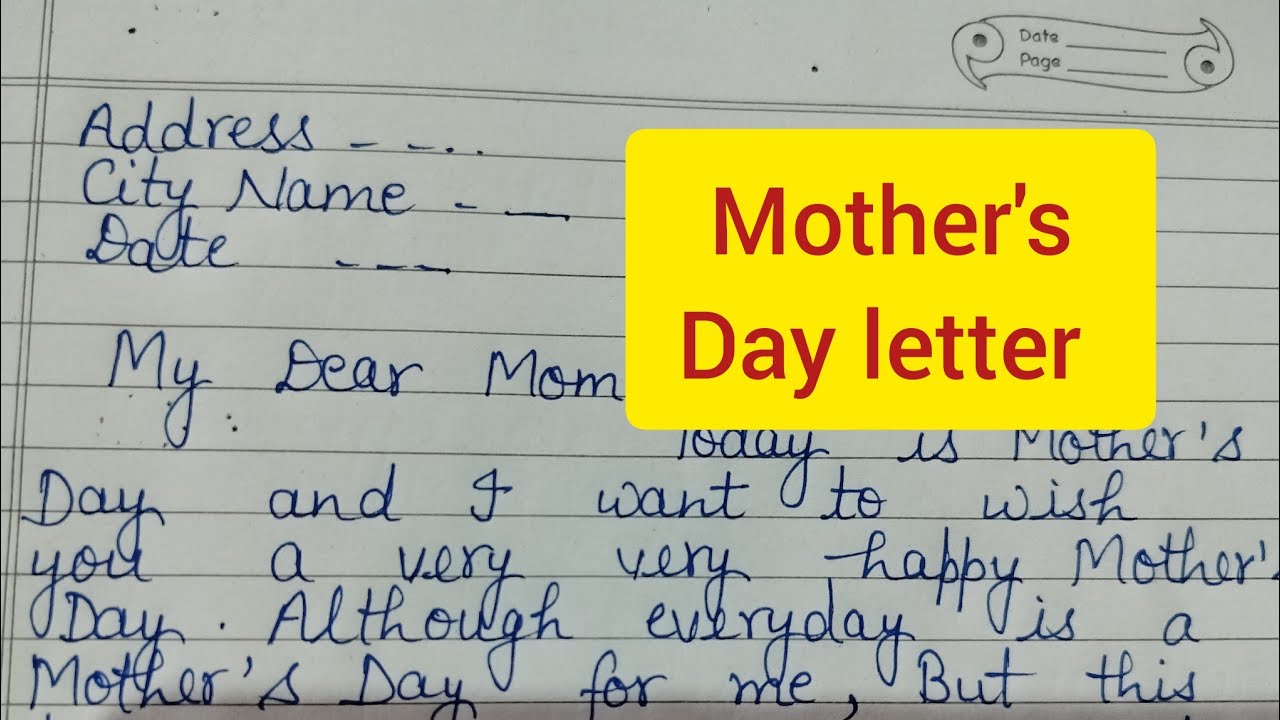 Date
Page
Address - - . .
City Name - —
Date - - -
Mother's
Day letter
My Dear Mom
Today is Mother's
Day and I want to wish
you a very very happy Mother's
Day. Although everyday is a
Mother's Day for me, But this